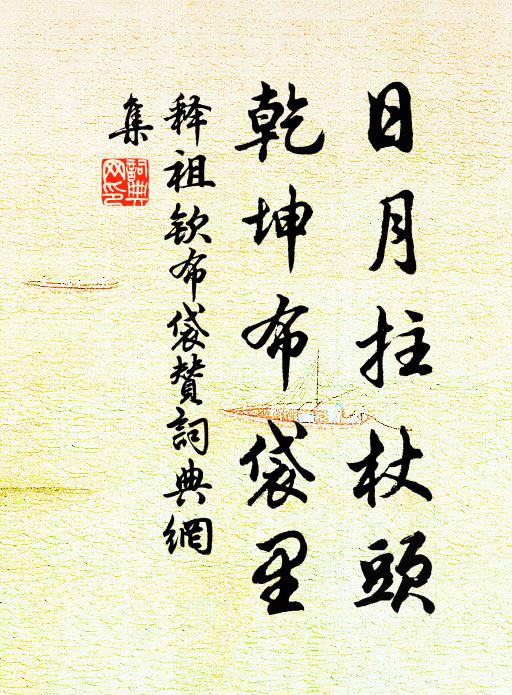 日月拄杖頭
乾坤布袋里
释祖钦布袋赞詞典網
集
詞典
网印